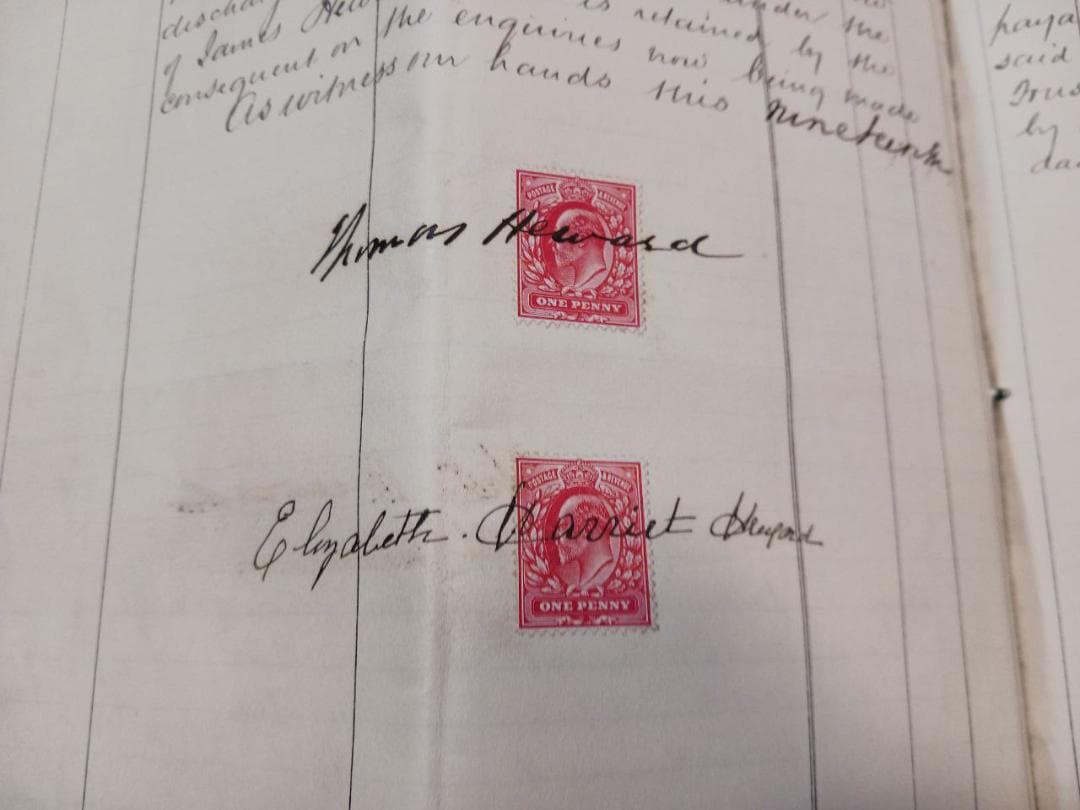 discharge
of James is retained under the
consequent on the enquiries now being made by the
As witness our hands this nineteenth
POSTAGE & REVENUE
Thomas Heward
ONE PENNY
POSTAGE & REVENUE
Elizabeth. Harriet
ONE PENNY
paya
said
Trus
by
da